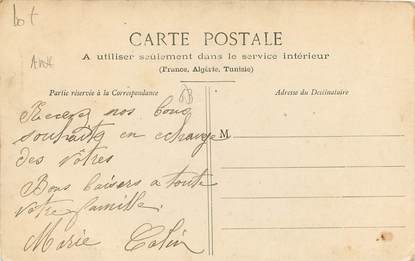 Lot
CARTE POSTALE
A utiliser seulement dans le service intérieur
(France, Algérie, Tunisie)
Partie réservée à la Correspondance
Adresse du Destinataire
M
Recevez nos bons
souhaits en echange
des vôtres
Bons baisers a toute
votre famille.
Marie Colin